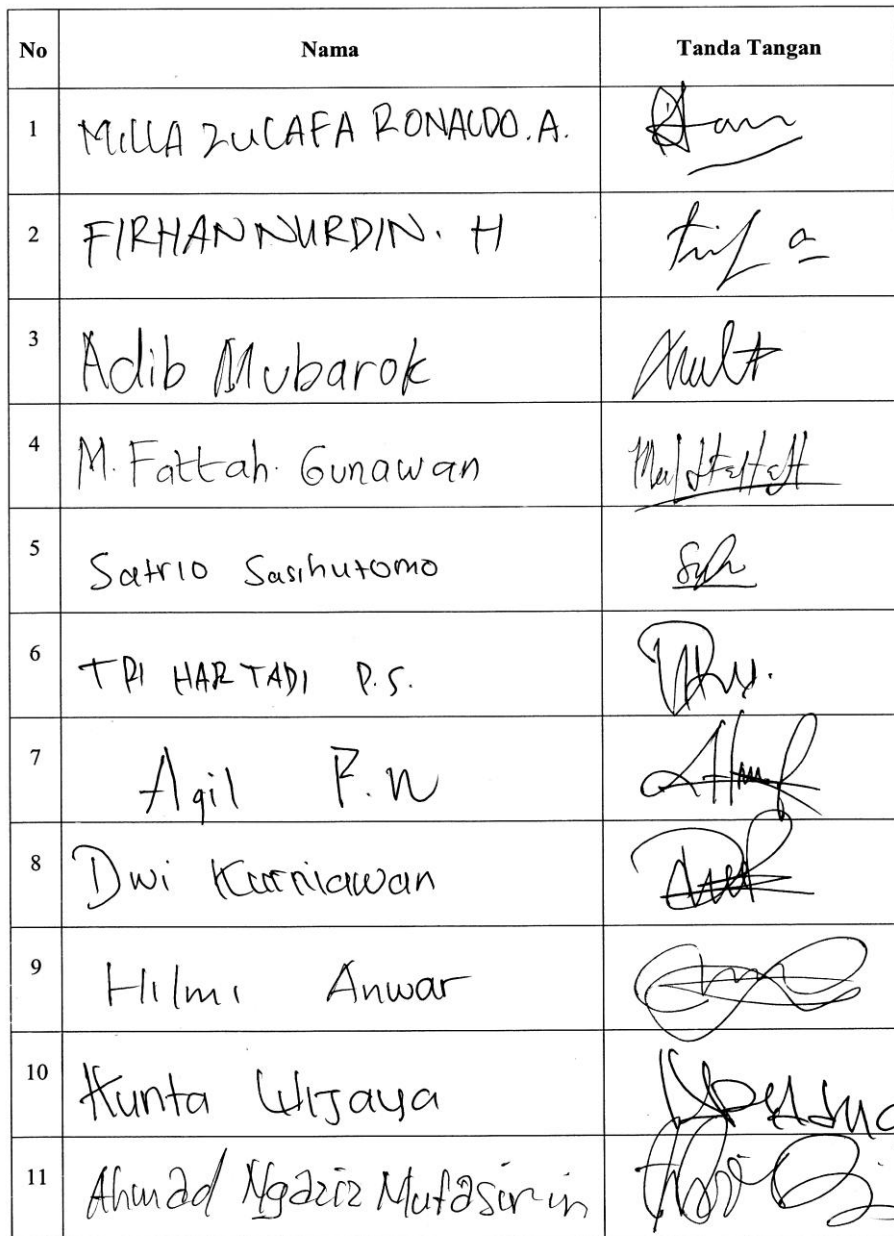 No Nama Tanda Tangan
1 MILLA ZULAFA RONALDO. A.
2 FIRHAN NURDIN. H
3 Adib Mubarok
4 M. Fattah. Gunawan
5 Satrio Sasihutomo
6 TRI HARTADI P.S.
7 Agil P.N
8 Dwi Kurniawan
9 Hilmi Anwar
10 Kunta Wijaya
11 Ahmad Ngaziz Mutasirin